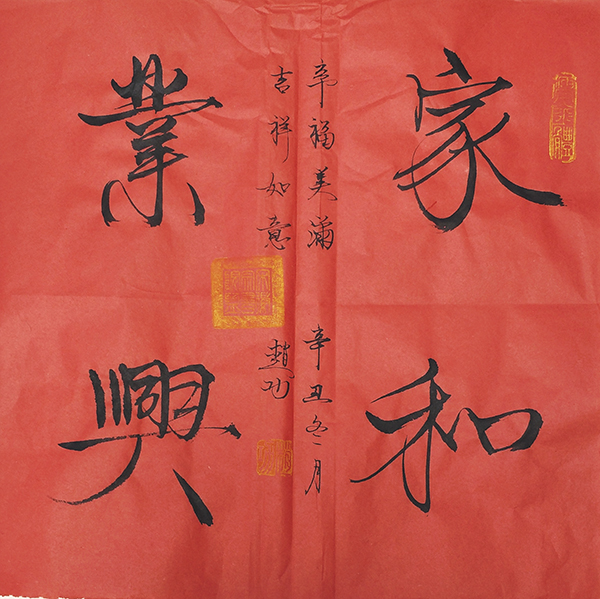 家和
幸福美滿 辛丑冬月
吉祥如意 趙
業興